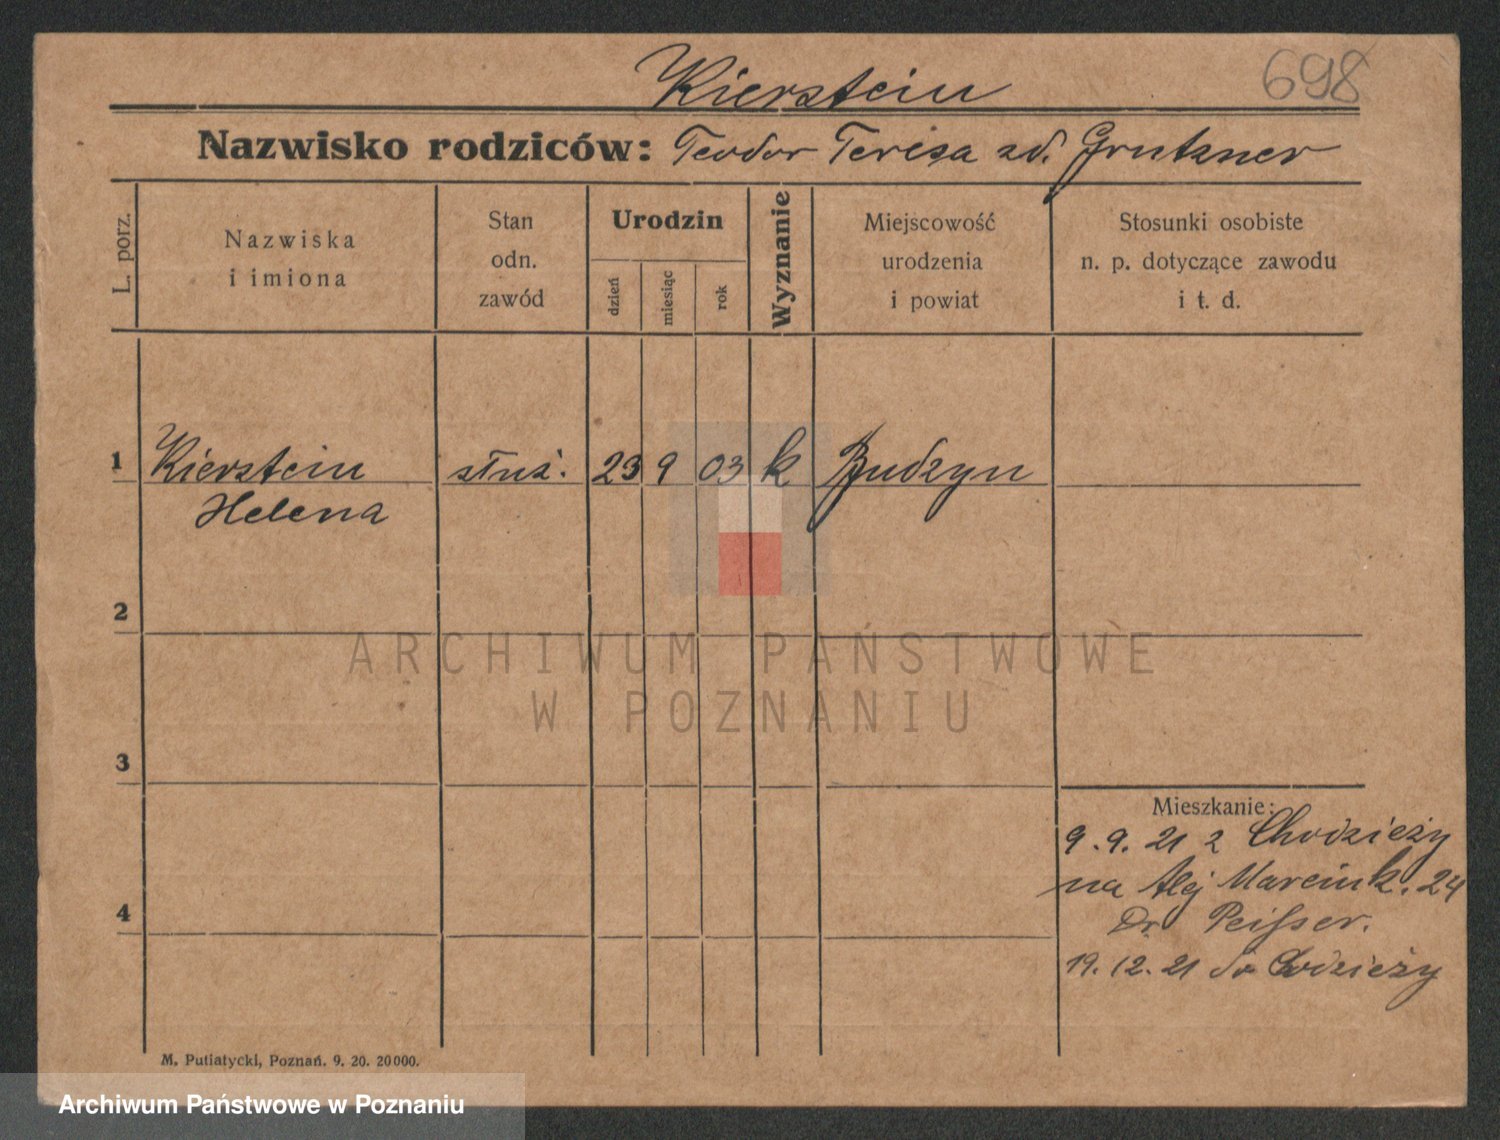 Kierstein
698
Nazwisko rodziców: Teodor Teresa zd. Grutzner
L. porz.
Nazwiska
i imiona
Stan
odn.
zawód
Urodzin
dzień
miesiąc
rok
Wyznanie
Miejscowość
urodzenia
i powiat
Stosunki osobiste
n. p. dotyczące zawodu
i t. d.
1 Kierstein służ. 23 9 03 k Budzyn
Helena
2
3
4
Mieszkanie:
9.9.21 z Chodzieży
na Alej Marcink. 24
Dr Peisser.
19.12.21 do Chodzieży
M. Putiatycki, Poznań. 9. 20. 20000.
ARCHIWUM PAŃSTWOWE
W POZNANIU
Archiwum Państwowe w Poznaniu